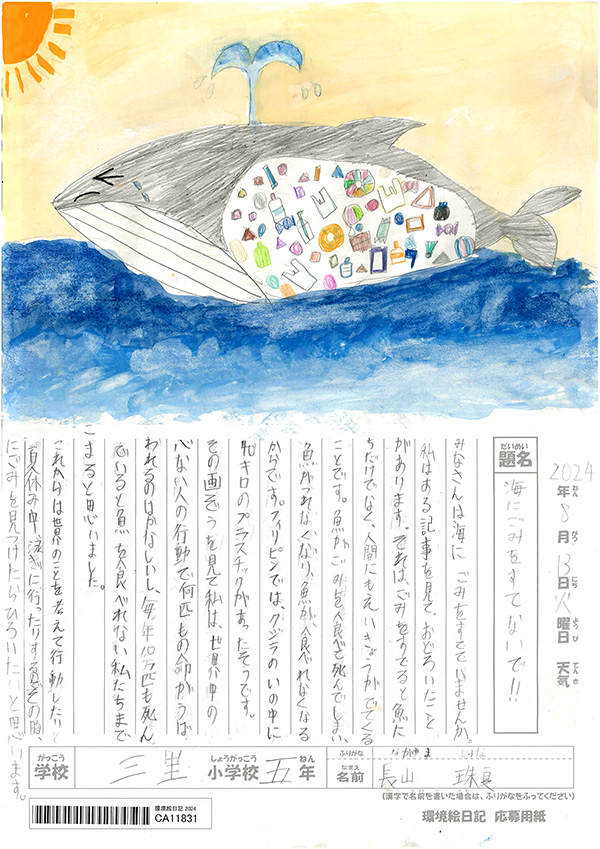 2024年8月13日火曜日 天気
ねん がつ にち ようび てんき
だいめい
題名
海にごみをすてないで!!
みなさんは海にごみをすてていませんか。
私はある記事を見て、おどろいたこと
があります。それは、ごみをすてると魚た
ちだけでなく、人間にもえいきょうがでてくる
ことです。魚がごみを食べて死んでしまい、
魚がつれなくなり、魚が食べれなくなる
からです。フィリピンでは、クジラのいの中に
40キロのプラスチックがあったそうです。
その画ぞうを見て私は、世界中の
心ない人の行動で何匹もの命がうば
われるのはかなしいし、毎年10万匹も死ん
でいると魚を食べれない私たちまで
こまると思いました。
これからは世界のことを考えて行動したい
夏休み中、泳ぎに行ったりするのでその時
にごみを見つけたらひろいたいと思います。
がっこう しょうがっこう ねん
学校 三里 小学校 五年
ふりがな ながやま
なまえ
名前 長山 珠
(漢字で名前を書いた場合は、ふりがなをふってください)
環境絵日記 2024
CA11831
環境絵日記 応募用紙